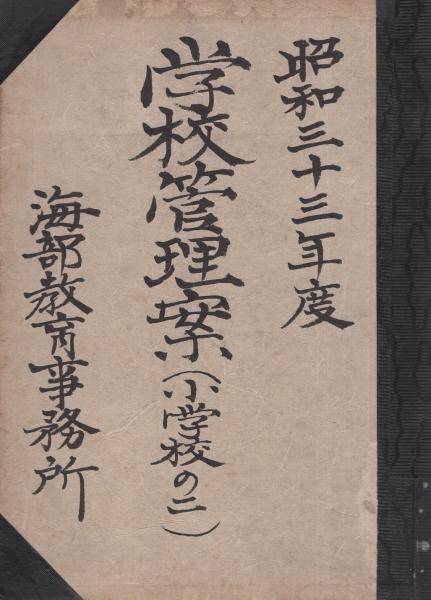 昭和三十三年度
学校管理案(小学校の二)
海部教育事務所